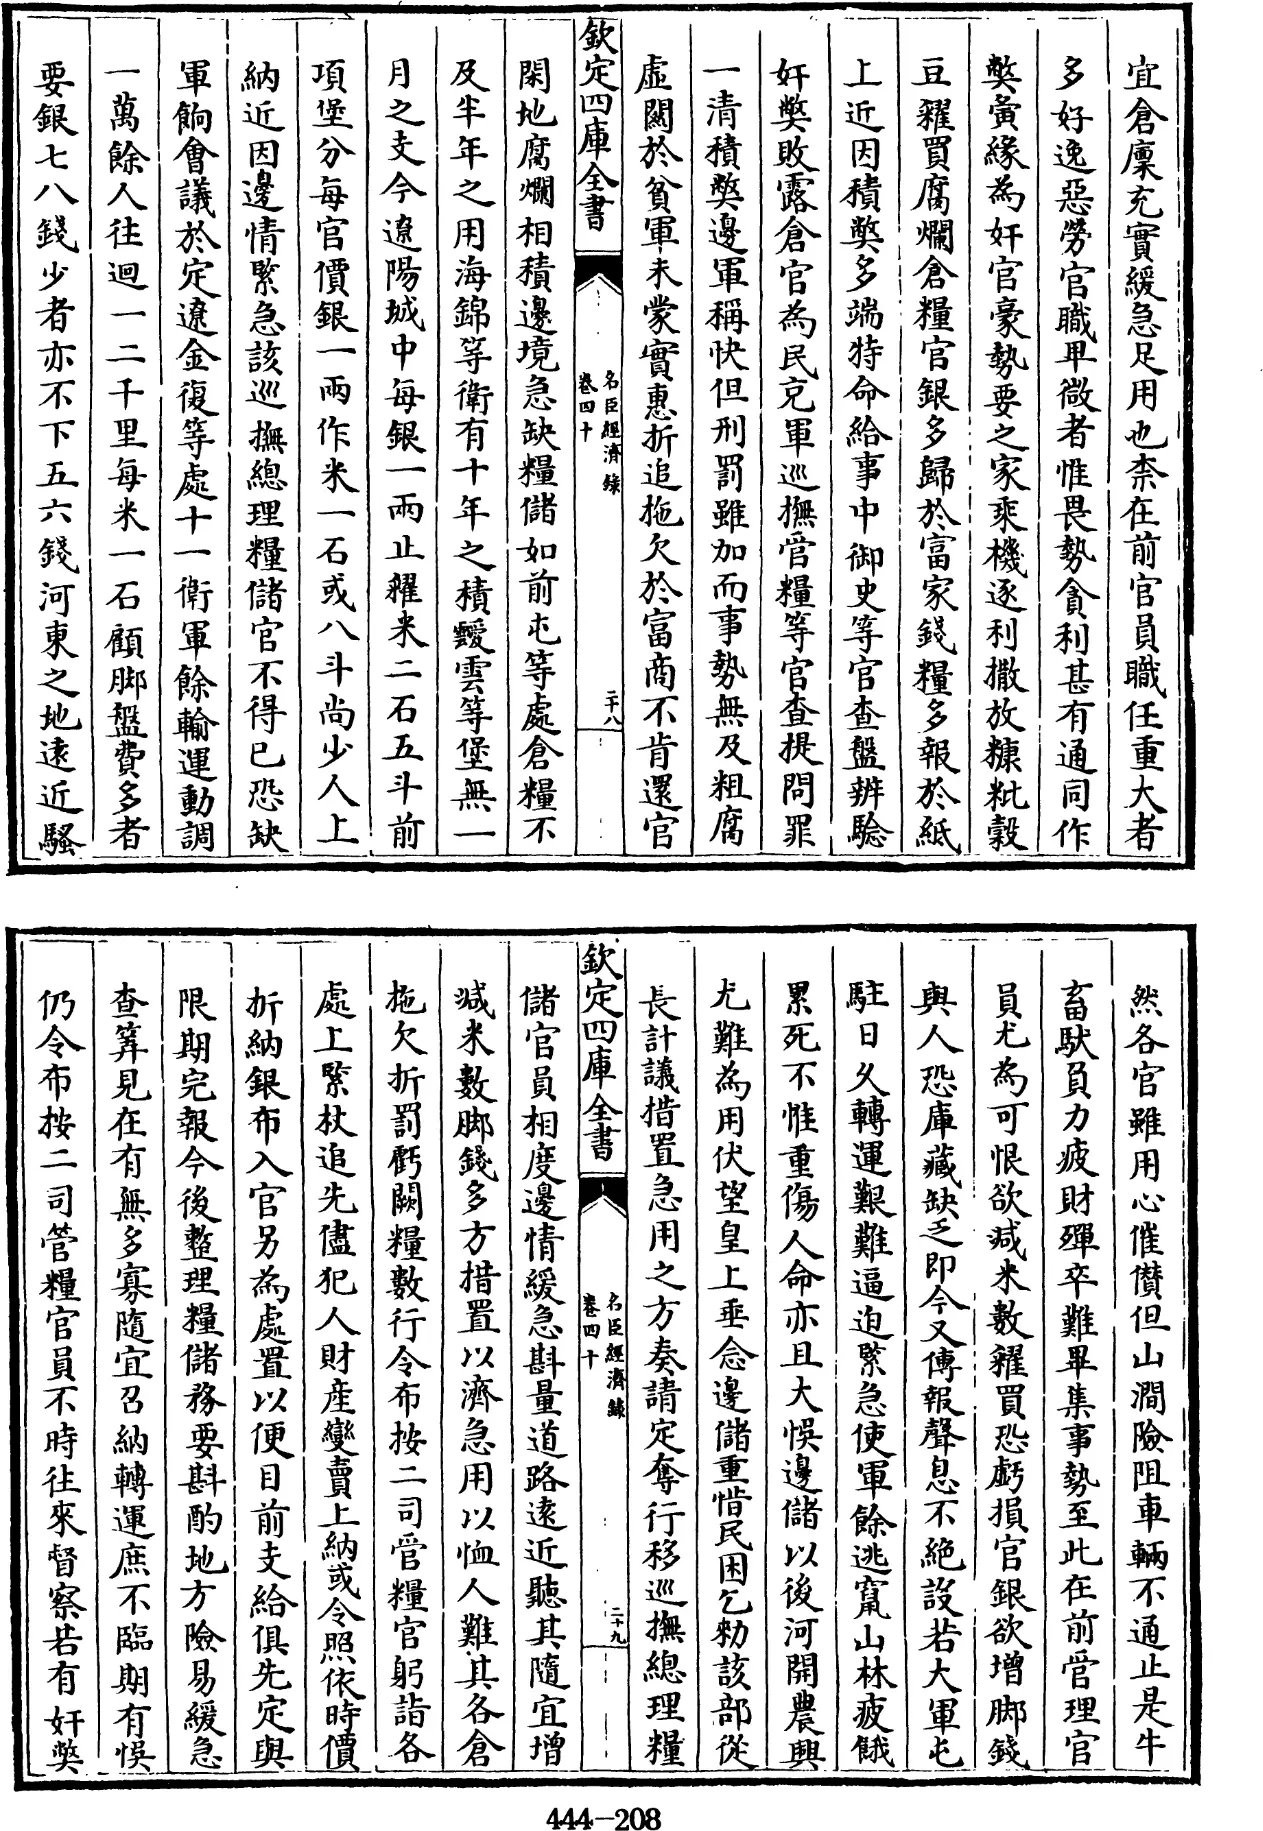 宜倉廩充實緩急足用也柰在前官員職任重大者
多好逸惡勞官職卑微者惟畏勢貪利甚有通同作
弊夤緣為奸官豪勢要之家乘機逐利撒放糠粃穀
豆糴買腐爛倉糧官銀多歸於富家錢糧多報於紙
上近因積弊多端特命給事中御史等官查盤辨驗
奸弊敗露倉官為民充軍巡撫管糧等官查提問罪
一清積弊邊軍稱快但刑罰雖加而事勢無及粗腐
虛關於貧軍未蒙實惠折追拖欠於富商不肯還官
欽定四庫全書
名臣經濟錄
卷四十
二十八
閑地腐爛相積邊境急缺糧儲如前屯等處倉糧不
及半年之用海錦等衛有十年之積靉雲等堡無一
月之支今遼陽城中每銀一兩止糴米二石五斗前
項堡分每官價銀一兩作米一石或八斗尚少人上
納近因邊情緊急該巡撫總理糧儲官不得已恐缺
軍餉會議於定遼金復等處十一衛軍餘輸運動調
一萬餘人往迴一二千里每米一石顧脚盤費多者
要銀七八錢少者亦不下五六錢河東之地遠近騷
然各官雖用心催儹但山澗險阻車輛不通止是牛
畜馱負力疲財殫卒難畢集事勢至此在前管理官
員尤為可恨欲減米數糴買恐虧損官銀欲增脚錢
與人恐庫藏缺乏即今又傳報聲息不絶設若大軍屯
駐日久轉運艱難逼迫緊急使軍餘逃竄山林疲餓
累死不惟重傷人命亦且大悞邊儲以後河開農興
尤難為用伏望皇上垂念邊儲重惜民困乞勑該部從
長計議措置急用之方奏請定奪行移巡撫總理糧
欽定四庫全書
名臣經濟錄
卷四十
二十九
儲官員相度邊情緩急斟量道路遠近聽其隨宜增
減米數脚錢多方措置以濟急用以恤人難其各倉
拖欠折罰虧闕糧數行令布按二司管糧官躬詣各
處上緊杖追先儘犯人財産變賣上納或令照依時價
折納銀布入官另為處置以便目前支給俱先定與
限期完報今後整理糧儲務要斟酌地方險易緩急
查算見在有無多寡隨宜召納轉運庶不臨期有悞
仍令布按二司管糧官員不時往來督察若有奸弊
444-208